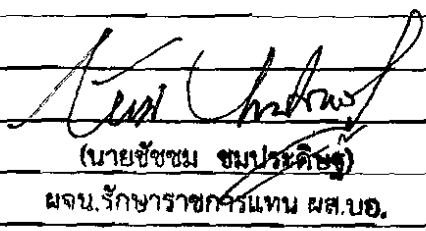 (นายชัชชม ชมประดิษฐ์)
ผจน.รักษาราชการแทน ผส.บอ.